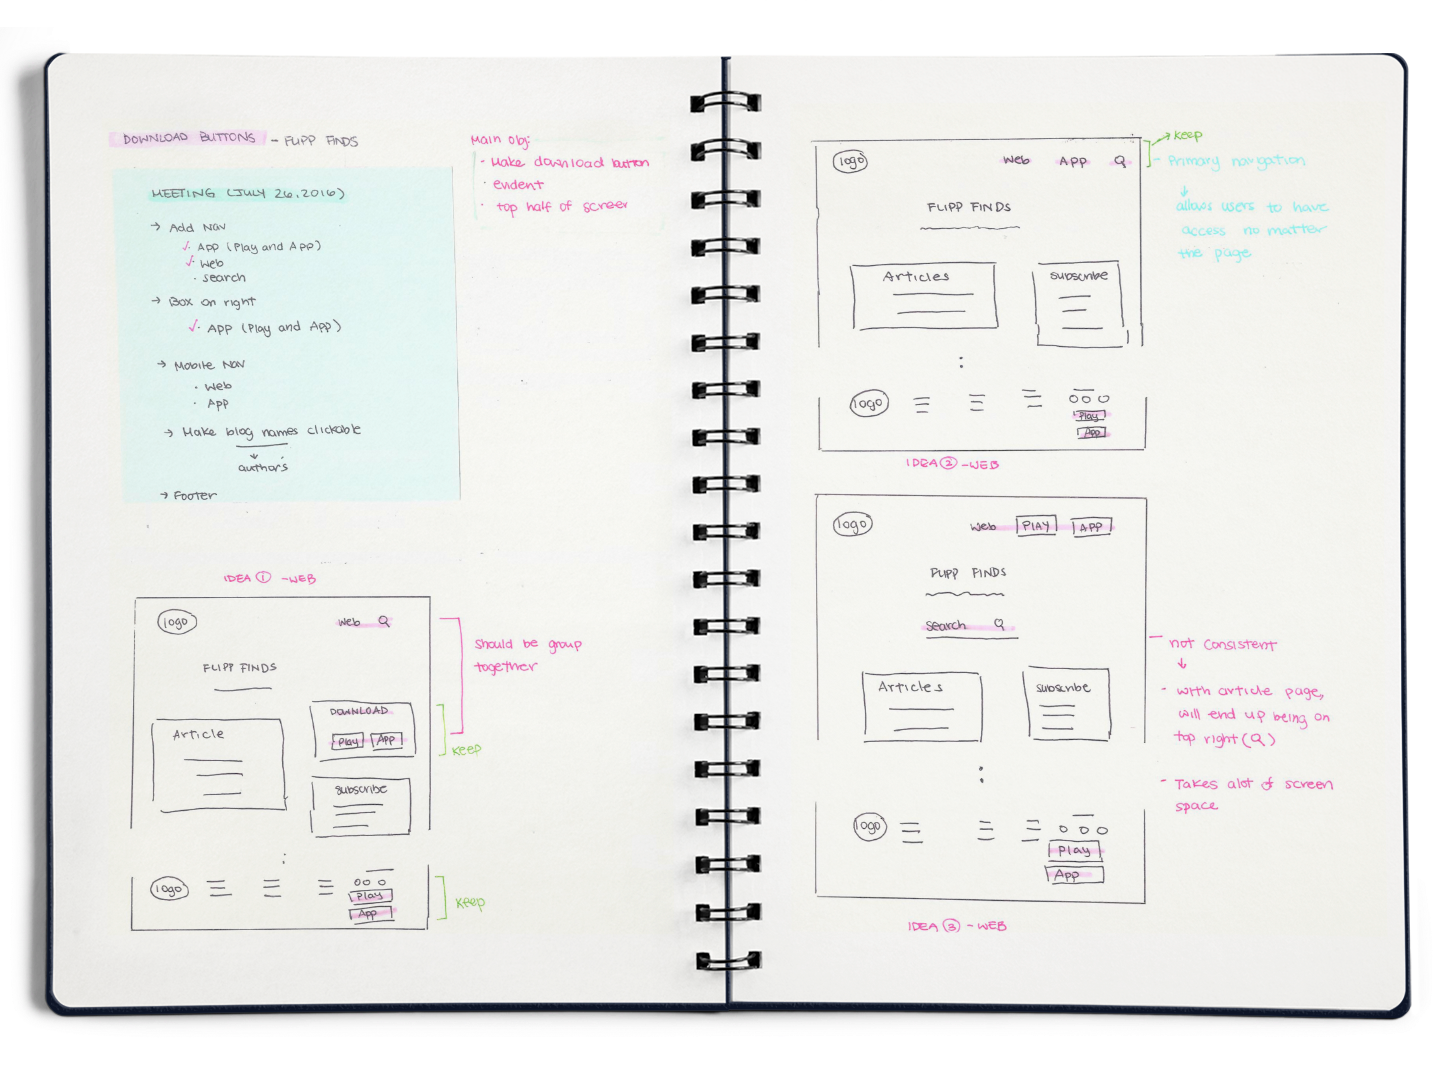 DOWNLOAD BUTTONS - FLIPP FINDS
MEETING (JULY 26, 2016)
→ Add Nav
✓ App (Play and App)
✓ Web
· search
→ Box on right
✓· App (Play and App)
→ Mobile Nav
· Web
· App
→ Make blog names clickable
↓
authors
→ Footer
Main obj:
· Make download button
· evident
· top half of screen
IDEA ① - WEB
logo
Web
FLIPP FINDS
DOWNLOAD
Play App
Article
subscribe
logo
Play
App
should be group
together
keep
keep
logo
Web APP
FLIPP FINDS
Articles
subscribe
logo
Play
App
IDEA ② - WEB
→ keep
- Primary navigation
↓
allows users to have
access no matter
the page
logo
Web PLAY APP
FLIPP FINDS
search
Articles
subscribe
logo
Play
App
IDEA ③ - WEB
- not consistent
↓
- with article page,
will end up being on
top right (Q)
- Takes alot of screen
space